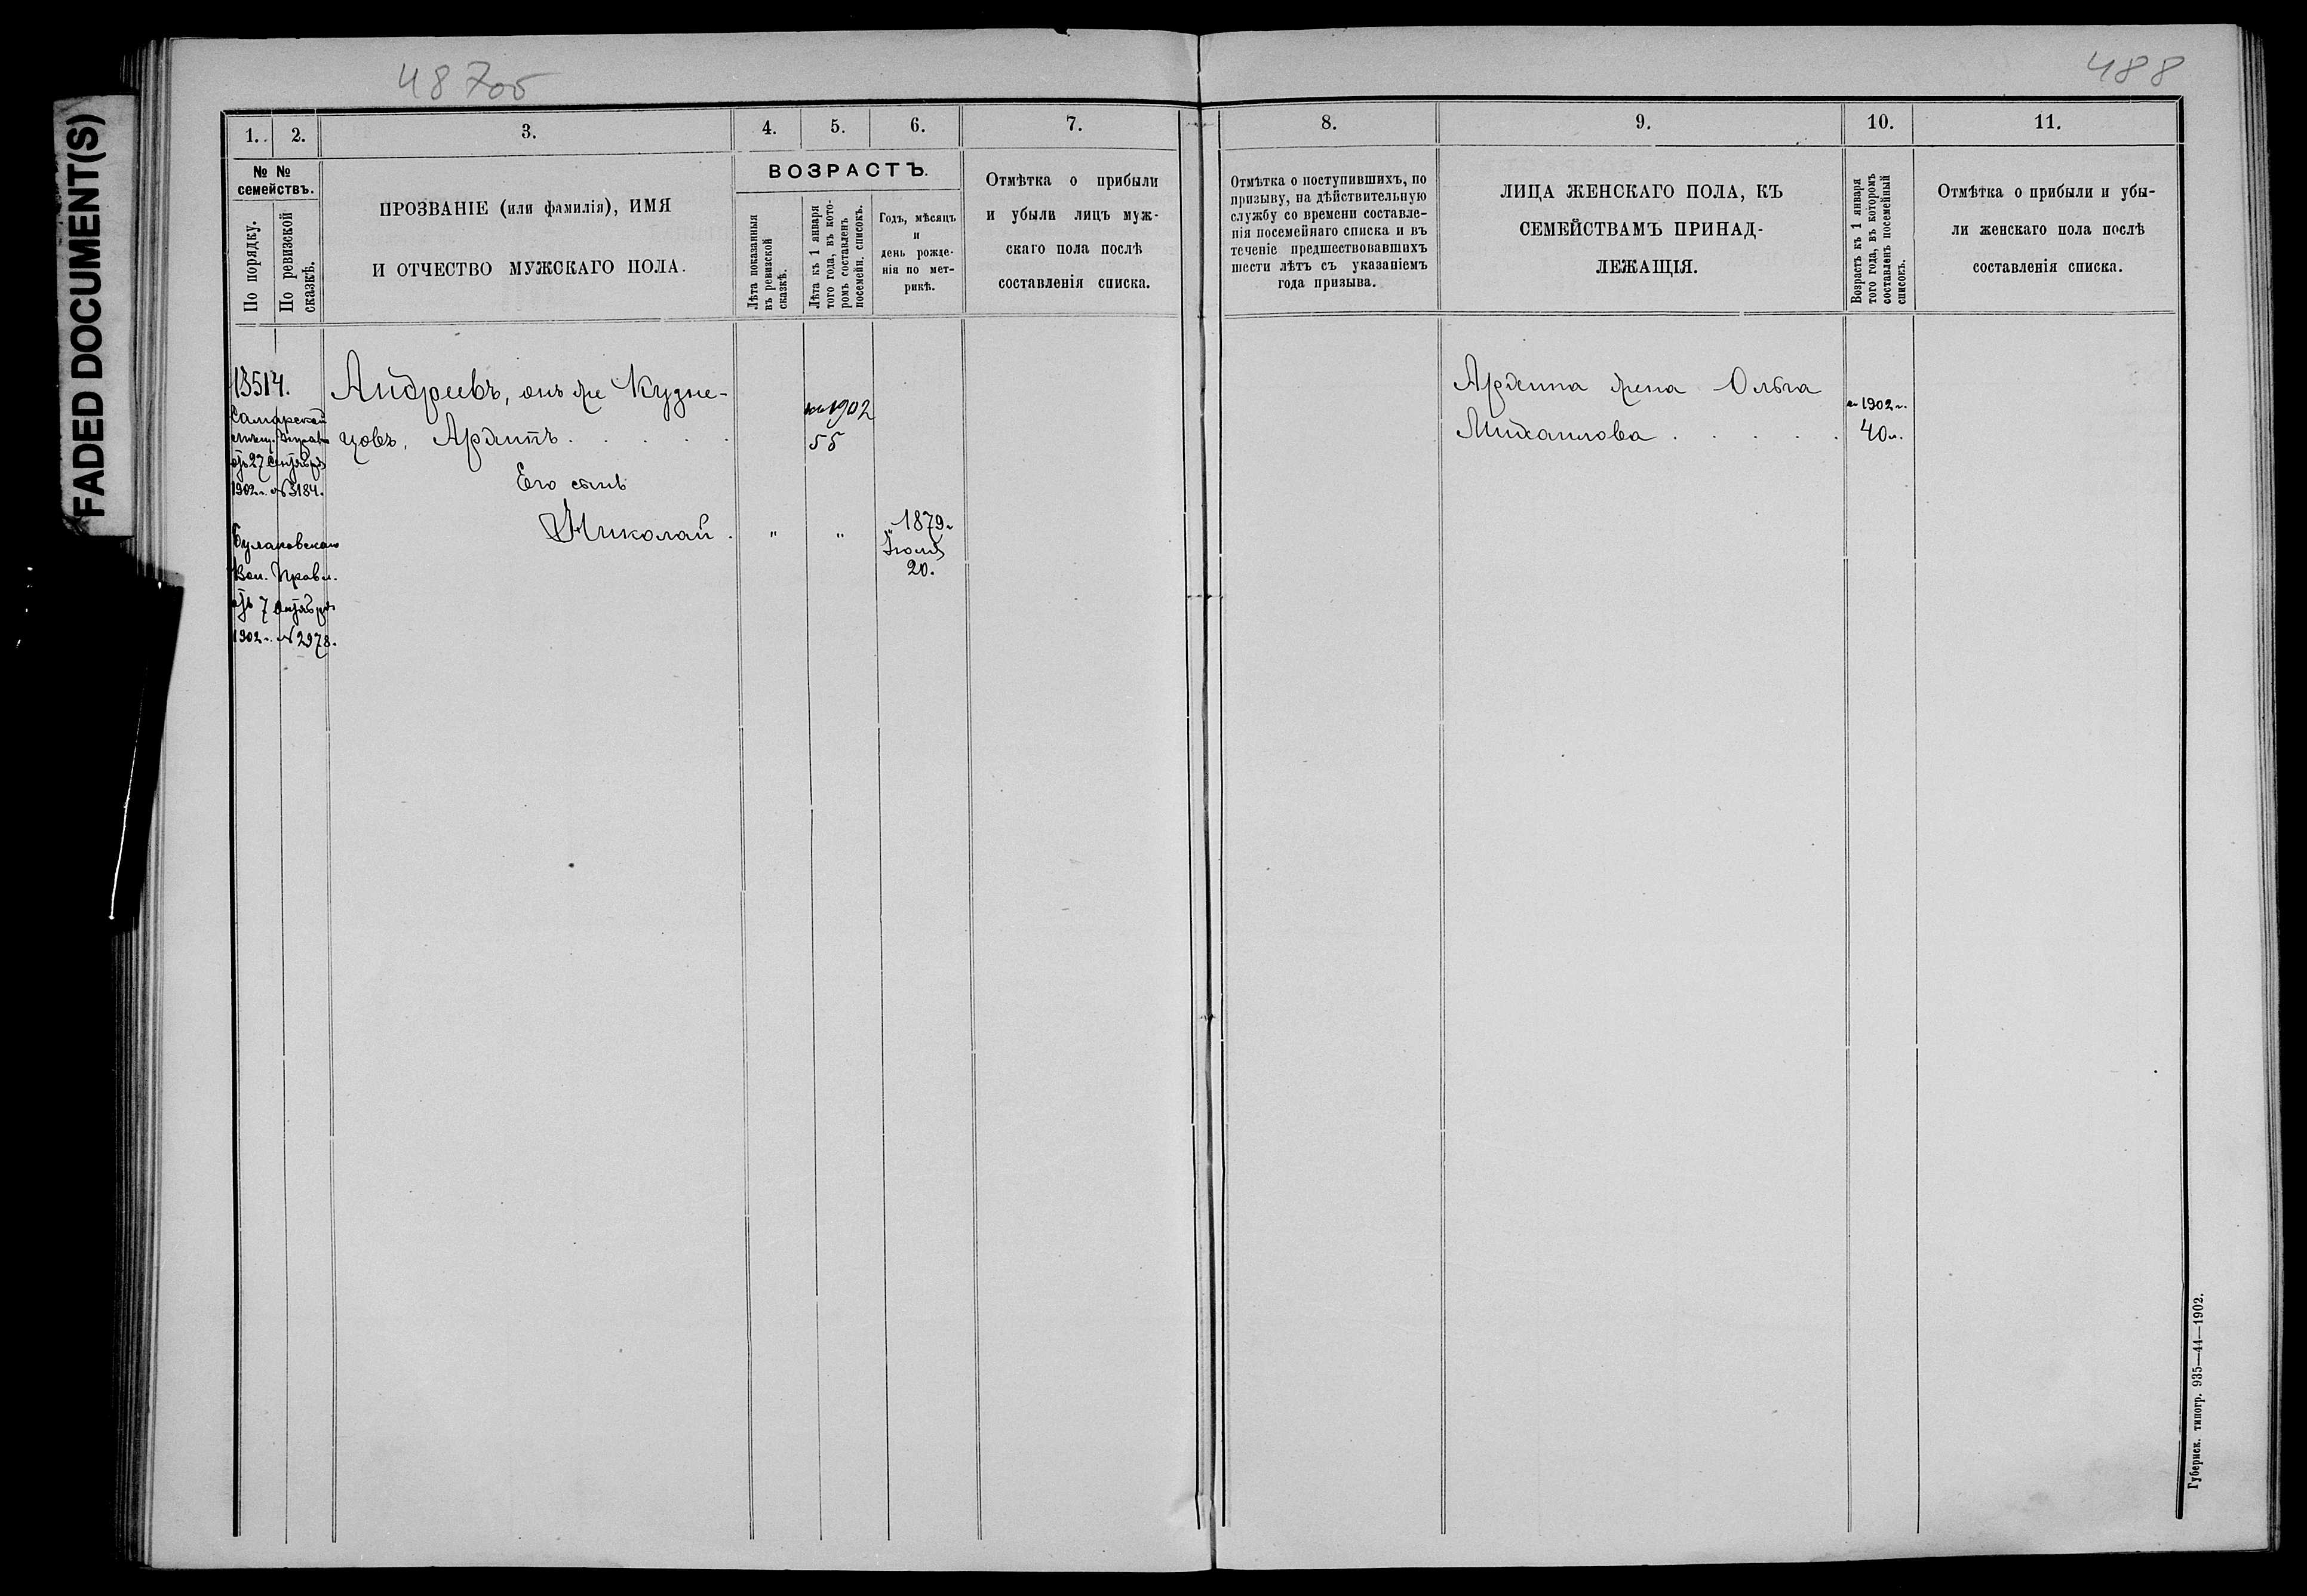 FADED DOCUMENT(S)
487об
488
1. 2. 3. 4. 5. 6. 7.
№ № семействъ.
По порядку.
По ревизской сказкѣ.
ПРОЗВАНІЕ (или фамилія), ИМЯ
И ОТЧЕСТВО МУЖСКАГО ПОЛА.
ВОЗРАСТЪ.
Лѣта показанныя
въ ревизской
сказкѣ.
Лѣта къ 1 января
того года, въ кото-
ромъ составленъ
посемейн. списокъ.
Годъ, мѣсяцъ
и
день рожде-
нія по мет-
рикѣ.
Отмѣтка о прибыли
и убыли лицъ муж-
скаго пола послѣ
составленія списка.
13514.
Самарской
мѣщ. Управы
отъ 27 Сентября
1902 г. № 3184.
Вол. Правл.
отъ 7 Октября
1902 г. № 2978.
Андреевъ, онъ же Кузне-
цовъ, Архипъ . . . . .
Его сынъ
Николай .
на 1902
55
" "
1879 г.
Іюля
20.
8. 9. 10. 11.
Отмѣтка о поступившихъ, по
призыву, на дѣйствительную
службу со времени составле-
нія посемейнаго списка и въ
теченіе предшествовавшихъ
шести лѣтъ съ указаніемъ
года призыва.
ЛИЦА ЖЕНСКАГО ПОЛА, КЪ
СЕМЕЙСТВАМЪ ПРИНАД-
ЛЕЖАЩІЯ.
Возрастъ къ 1 января
того года, въ которомъ
составленъ посемейный
списокъ.
Отмѣтка о прибыли и убы-
ли женскаго пола послѣ
составленія списка.
Архипа жена Ольга
Михаилова . . . . .
на 1902 г.
40 л.
Губернск. типогр. 935—44—1902.